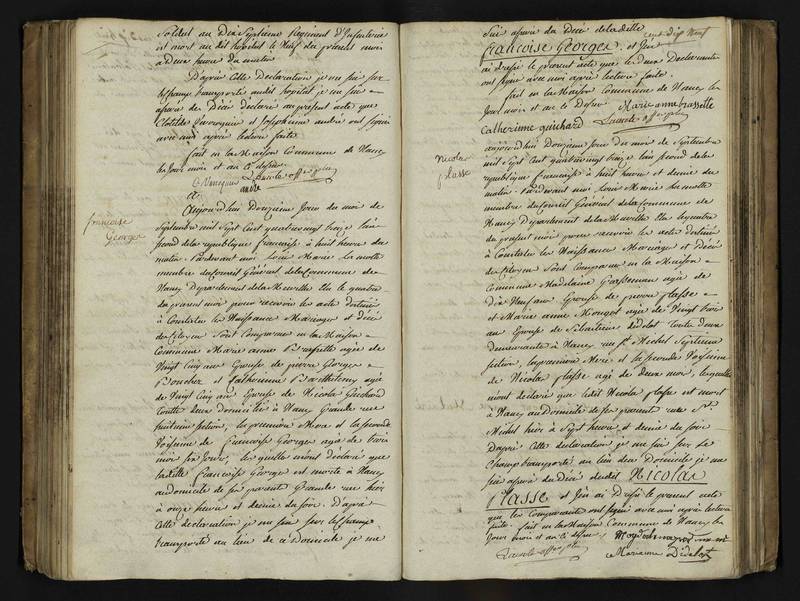 Soldat au Dix Septieme Regiment d'Infanterie
est mort au dit hôpital le Neuf du présent mois
a Deux heures du matin
D'apres Cette Declaration je me suis sur
le champ transporté audit hopital je me suis
assuré du Décè declaré au present acte que
Clotilde et Josephinne andré ont signé
avec moi après lecture faite
fait en la Maison Commune de Nancy
les Jour mois et an Ci dessus
Lacretelle off. public
andré
françoise
Georges
Aujourdhui Douzieme Jour du mois de
Septembre mil Sept Cent quatrevingt treize l'an
second de la republique francaise à huit heures du
matin Pardevant moi Louis Marie la motte
membre du Conseil Général de la Commune de
Nancy Departement de la Meurthe Elu le quatre
du present mois pour recevoir les actes destinés
à Constater les Naissances Mariages et Décès
des Citoyens Sont Comparues en la Maison
Commune Marie anne Brassette agée de
Vingt Cinq ans Epouse de pierre Georges
Boucher et Catherinne Barthelemy agée
de Vingt Cinq ans Epouse de Nicolas Guichard
toutes deux Domiciliées à Nancy Grande rue
huitieme section, la premiere Mere et la seconde
Voisinne de francoise Georges agée de trois
mois six Jours, lesquelles m'ont déclaré que
ladite francoise Georges est morte à Nancy
au domicile de ses parents Grande rue hier
à onze heures et demie du soir. D'après
Cette declaration je me suis sur le champ
transporté au lieu de ce Domicile je me
suis assuré du Décè de ladite
françoise Georges et J'en
ai dressé le present acte que les deux Declarantes
ont signé avec moi après lecture faite
fait en la Maison Commune de Nancy les
Jour mois et an Ci Dessus Marie anne brassette
Catherinne guichard
Nicolas
plasse
aujourdhui Douzieme jour du mois de Septembre
mil Sept Cent quatrevingt treize l'an second de la
republique francaise à huit heures et demie du
matin Pardevant moi Louis Marie la motte
membre du Conseil Général de la Commune de
Nancy Departement de la Meurthe Elu le quatre
du present mois pour recevoir les actes destinés
à Constater les Naissances Mariages et Décès
des Citoyens Sont Comparues en la Maison
Commune Madelaine agée de
Dix Neuf ans Epouse de pierre plasse
et Marie anne Mougot agée de Vingt trois
ans Epouse de Sebastienne didelot toutes deux
demeurantes à Nancy rue St. Michel Septieme
section, la premiere Mere et la seconde Voisinne
de Nicolas plasse agé de deux mois, lesquelles
m'ont declaré que ledit Nicolas plasse est mort
à Nancy au Domicile de ses parents rue St.
Michel hier à Sept heures et demie du soir
D'après Cette declaration je me suis sur le
Champ transporté au lieu de ce Domicile je me
suis assuré du Décè dudit Nicolas
Plasse et j'en ai Dressé le present acte
que les Comparantes ont signé avec moi après lecture
faite. fait en la Maison Commune de Nancy les
Jour mois et an Ci dessus
Marianne Didelot